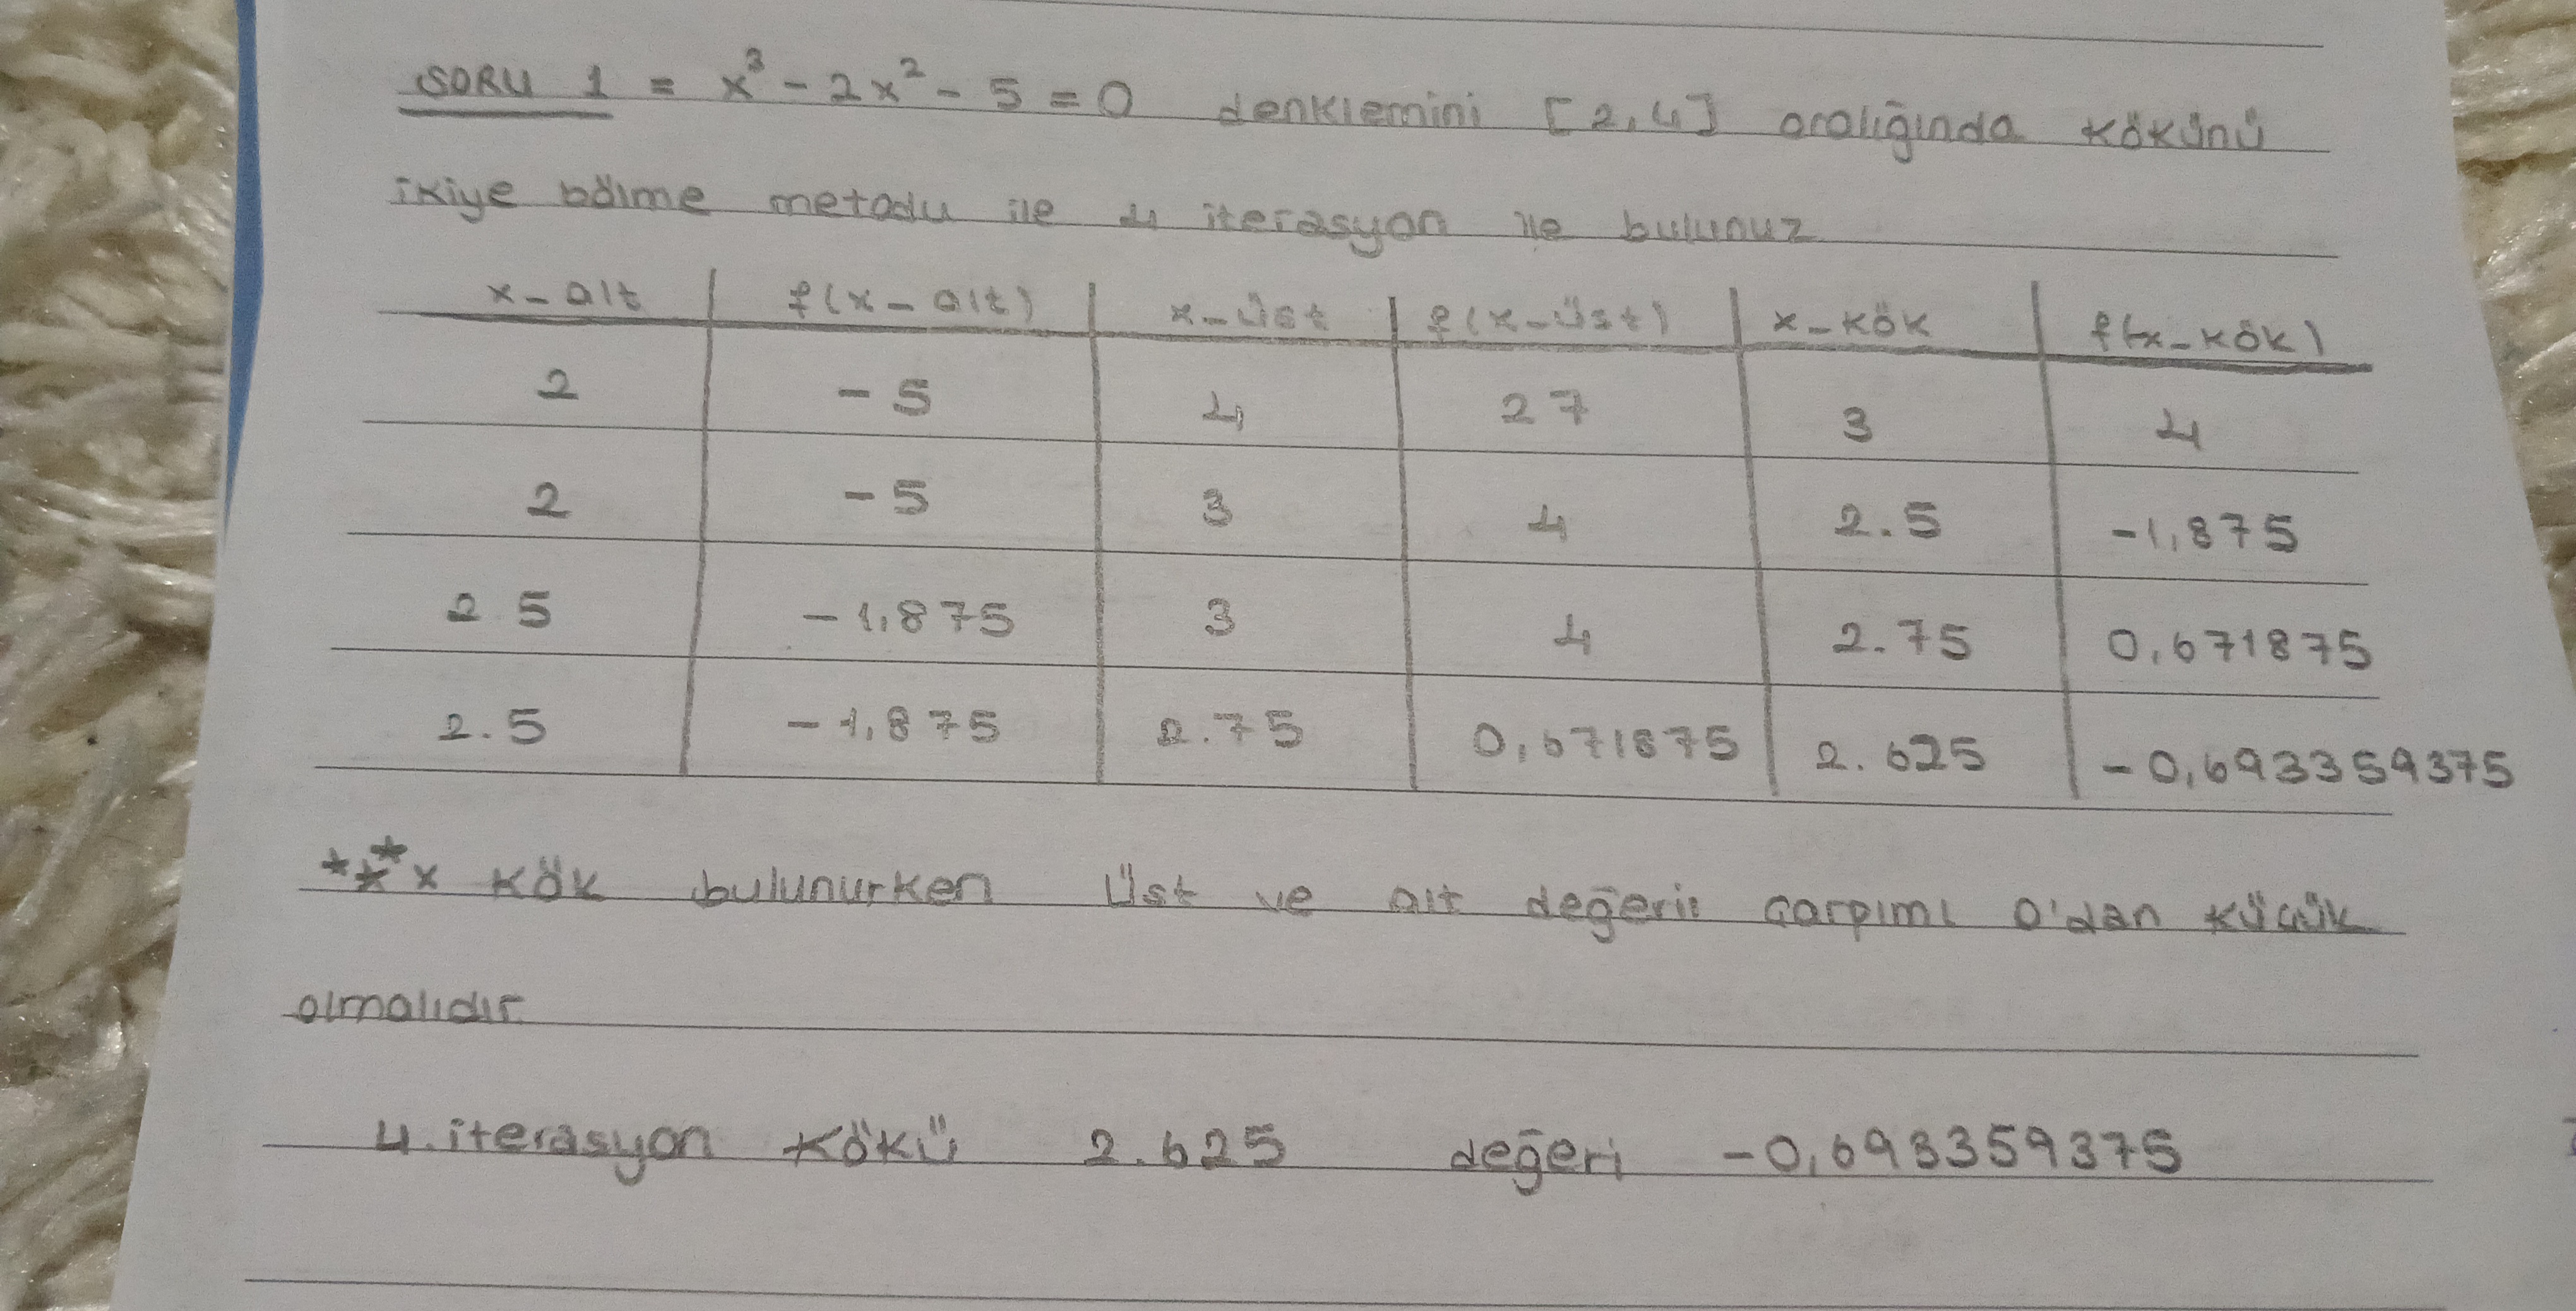 SORU 1 = x³ - 2x² - 5 = 0 denklemini [2,4] aralığında kökünü
ikiye bölme metodu ile 4 iterasyon ile bulunuz
x-alt f(x-alt) x-üst f(x-üst) x-kök f(x-kök)
2 -5 4 27 3 4
2 -5 3 4 2.5 -1,875
2.5 -1,875 3 4 2.75 0,671875
2.5 -1,875 2.75 0,671875 2.625 -0,693359375
*** x kök bulunurken Üst ve alt değerin çarpımı 0'dan küçük
olmalıdır
4. iterasyon kökü 2.625 değeri -0,693359375